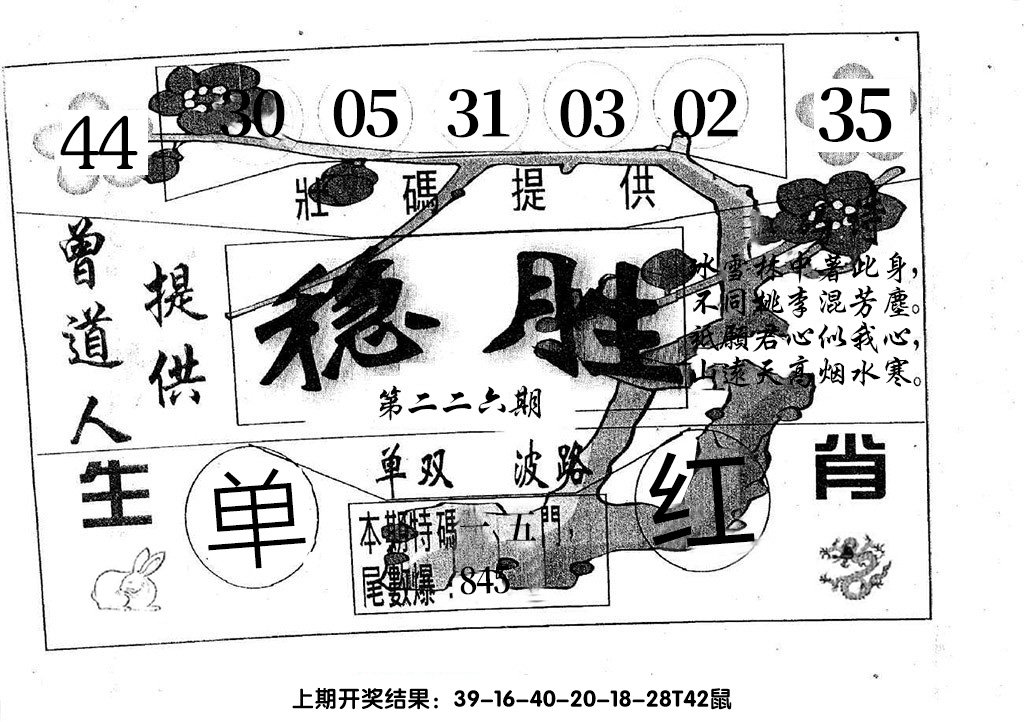 44 30 05 31 03 02 35
壯碼提供
特
曾道人
提供
稳胜
第二二六期
冰雪林中著此身，
不同桃李混芳塵。
祗願君心似我心，
山遠天高烟水寒。
单双 波路
生肖
单
红
本期特碼一、五門，
尾數爆:845
上期开奖结果：39-16-40-20-18-28T42鼠